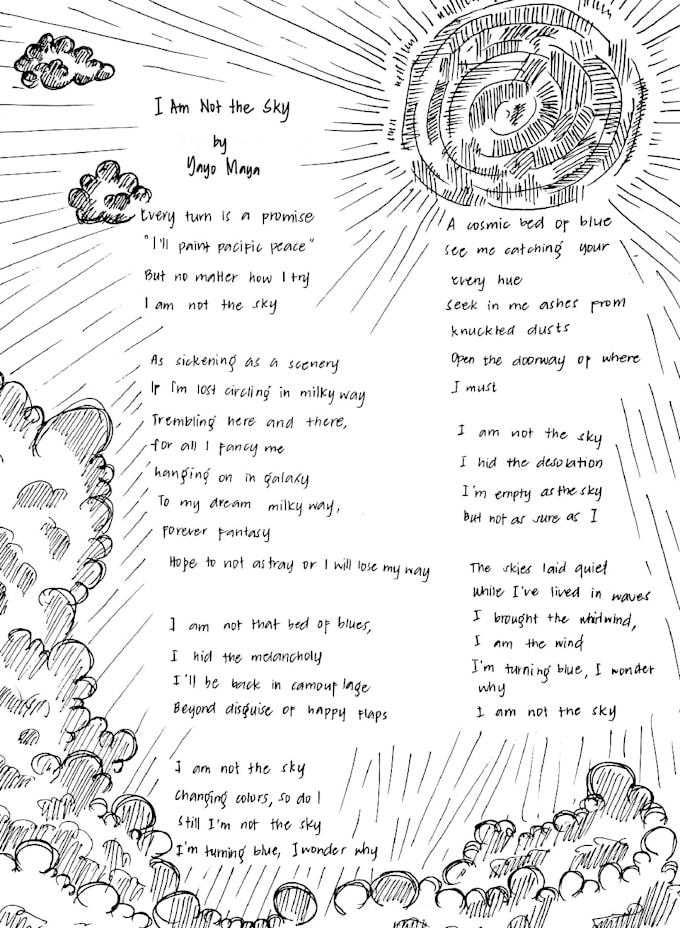 I Am Not the Sky
by
Yayo Maya
Every turn is a promise
"I'll paint pacific peace"
But no matter how I try
I am not the sky
As sickening as a scenery
If I'm lost circling in milky way
Trembling here and there,
for all I fancy me
hanging on in galaxy
To my dream milky way,
forever fantasy
Hope to not astray or I will lose my way
I am not that bed of blues,
I hid the melancholy
I'll be back in camouflage
Beyond disguise of happy flaps
I am not the sky
Changing colors, so do I
Still I'm not the sky
I'm turning blue, I wonder why
A cosmic bed of blue
See me catching your
every hue
Seek in me ashes from
knuckled dusts
Open the doorway of where
I must
I am not the sky
I hid the desolation
I'm empty as the sky
but not as sure as I
The skies laid quiet
While I've lived in waves
I brought the whirlwind,
I am the wind
I'm turning blue, I wonder
why
I am not the sky